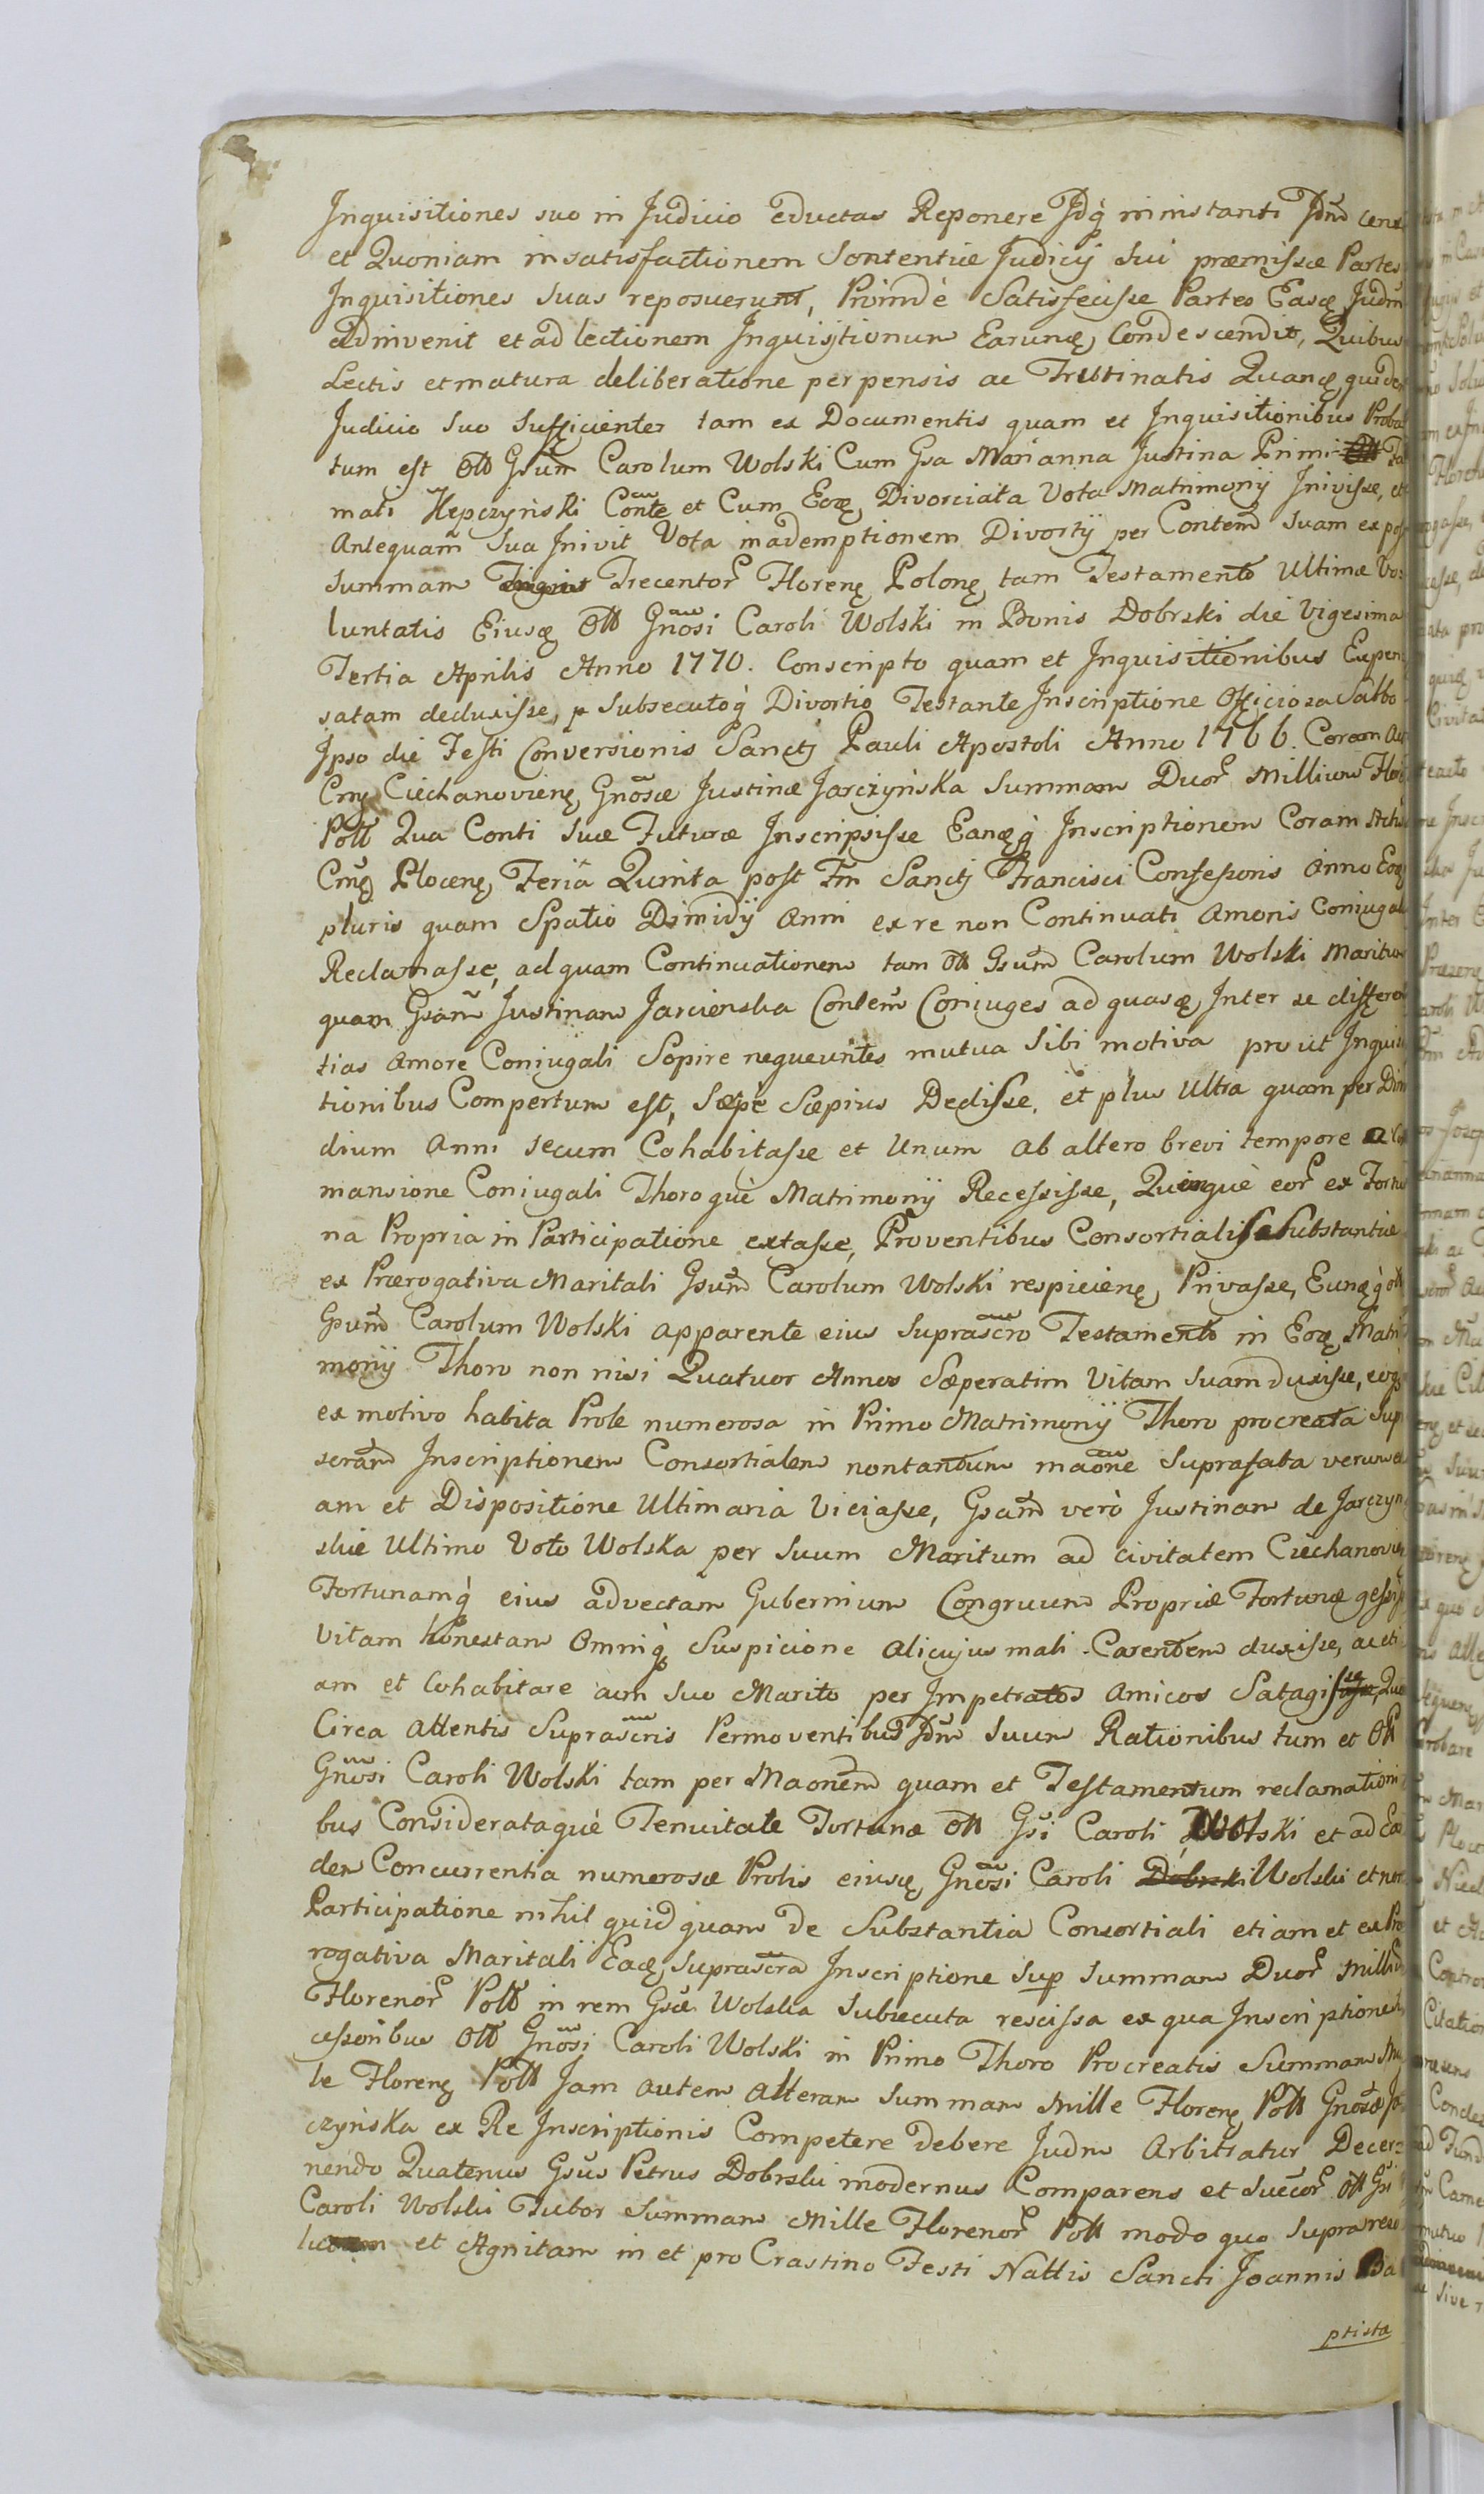 Inquisitiones suo in Judicio eductas Reponere Jdq́ in instanti Jdm̃ cens
et Quoniam in satisfactionem Sententiæ Judicij Sui præmissæ Partes
Inquisitiones Suas reposuerunt, Proindè Satisfecisse Partes Easꝗ Judm̃
adinvenit et ad lectionem Inquisitionum Earunꝗ Condescendit, Quibus
Lectis et matura deliberatione perpensis ac Trutinatis Quanꝗ quidem
Judicio Suo Sufficienter tam ex Documentis quam et Inquisitionibus Proba
tum est Olt̃ Gsum̃ Carolum Wolski Cum Gsa Marianna Justina Primi
mati Kępczyński Conte et Cum Eoꝗ Divorciata Vota Matrimonij Inivisse, et
Antequam Sua Inivit Vota in ademptionem Divortij per Contem̃ Suam expos
Summam Trecentor̃ Florenꝗ Polonꝗ tam Testamento Ultimæ Vo=
luntatis Eiusꝗ Olt̃ Gnosi Caroli Wolski in Bonis Dobrski die Vigesima
Tertia Aprilis Anno 1770. Conscripto quam et Inquisitionibus Expen
satam deduxisse, p Subsecutoq́ Divortio Testante Inscriptione Officiosa Sabbo
Ipso die Festi Conversionis Sancti Pauli Apostoli Anno 1766. Coram Act
Crnꝗ Ciechanovienꝗ Gnosæ Justinæ Jarczyńska Summam Duor̃ Millium Flor
Poll̃ Qua Conti Suæ Futuræ Inscripsisse Eanꝗq́ Inscriptionem Coram Actis
Crnꝗ Plocenꝗ Feriâ Quinta post Fm̃ Sancti Francisci Confessoris Anno Eoꝗ
pluris quam Spatio Dimidij Anni ex re non Continuati Amoris Coniugal
Reclamasse, ad quam Continuationem tam Olt̃ Gsum̃ Carolum Wolski Maritum
quam Gsam̃ Justinam Jarcienska Contem̃ Coniuges ad quasꝗ Inter se differen
tias Amore Coniugali Sopire nequeuntes mutua Sibi motiva prout Inquisi
tionibus Compertum est, Sæpè Sæpius Dedisse, et plus Ultra quam per Dimi
dium Anni secum Cohabitasse et Unum ab altero brevi tempore a Co
mansione Coniugali Thoroquè Matrimonij Recessisse, Quinquè eor̃ ex Fortu
na Propria in Participatione extasse, Proventibus Consortialis Substantiæ
ex Prærogativa Maritali Gsum̃ Carolum Wolski respicienꝗ Privasse, Eunꝗq́ olt̃
Gsum̃ Carolum Wolski apparente eius Suprascro Testamento in Eoꝗ Matri
monij Thoro non nisi Quatuor Annos Sæperatim Vitam Suam duxisse, eoqꝫ
ex motivo habita Prole numerosa in Primo Matrimonij Thoro procreata Sup
scram̃ Inscriptionem Consortialem non tantum maone Suprafata verum et
am et Dispositione Ultimaria Viciasse, Gsam̃ verò Justinam de Jarczyn
skie Ultimo Voto Wolska per Suum Maritum ad Civitatem Ciechanovien
Fortunamq́ eius advectam Gubernium Congruum Propriæ Fortunæ gessisse
Vitam honestam Omniq́ Suspicione alicujus mali Carentem duxisse, ac eti
am et Cohabitare cum Suo Marito per Impetratos Amicos Satagisse Quo
Circa Attentis Suprascris Permoventibus Jdm̃ Suum Rationibus tum et Olt̃
Gnosi Caroli Wolski tam per Maonem̃ quam et Testamentum reclamationi
bus Considerataquè Tenuitate Fortunæ Olt̃ Gsi Caroli Wolski et ad Ean
dem Concurrentia numerosæ Prolis eiusꝗ Gnosi Caroli Dobrski Wolski et non
Participatione nihil quidquam de Substantia Consortiali etiam et ex Præ
rogativa Maritali Eaꝗ Suprascra Inscriptione Sup̱ Summam Duor̃ Millium
Florenor̃ Poll̃ in rem Gsæ Wolska Subsecuta rescissa ex qua Inscriptione Suc
cessoribus Olt̃ Gnosi Caroli Wolski in Primo Thoro Procreatis Summam Mil
le Florenꝗ Poll̃ Jam autem alteram Summam Mille Florenꝗ Poll̃ Gnosæ Jar
czyńska ex Re Inscriptionis Competere debere Judm̃ Arbitratur Decer=
nendo Quatenus Gsus̃ Petrus Dobrski modernus Comparens et Succor̃ Olt̃ Gsi
Caroli Wolski Tutor Summam Mille Florenor̃ Poll̃ modo quo Supra reso
lutam et Agnitam in et pro Crastino Festi Nattis Sancti Joannis Ba
ptistæ